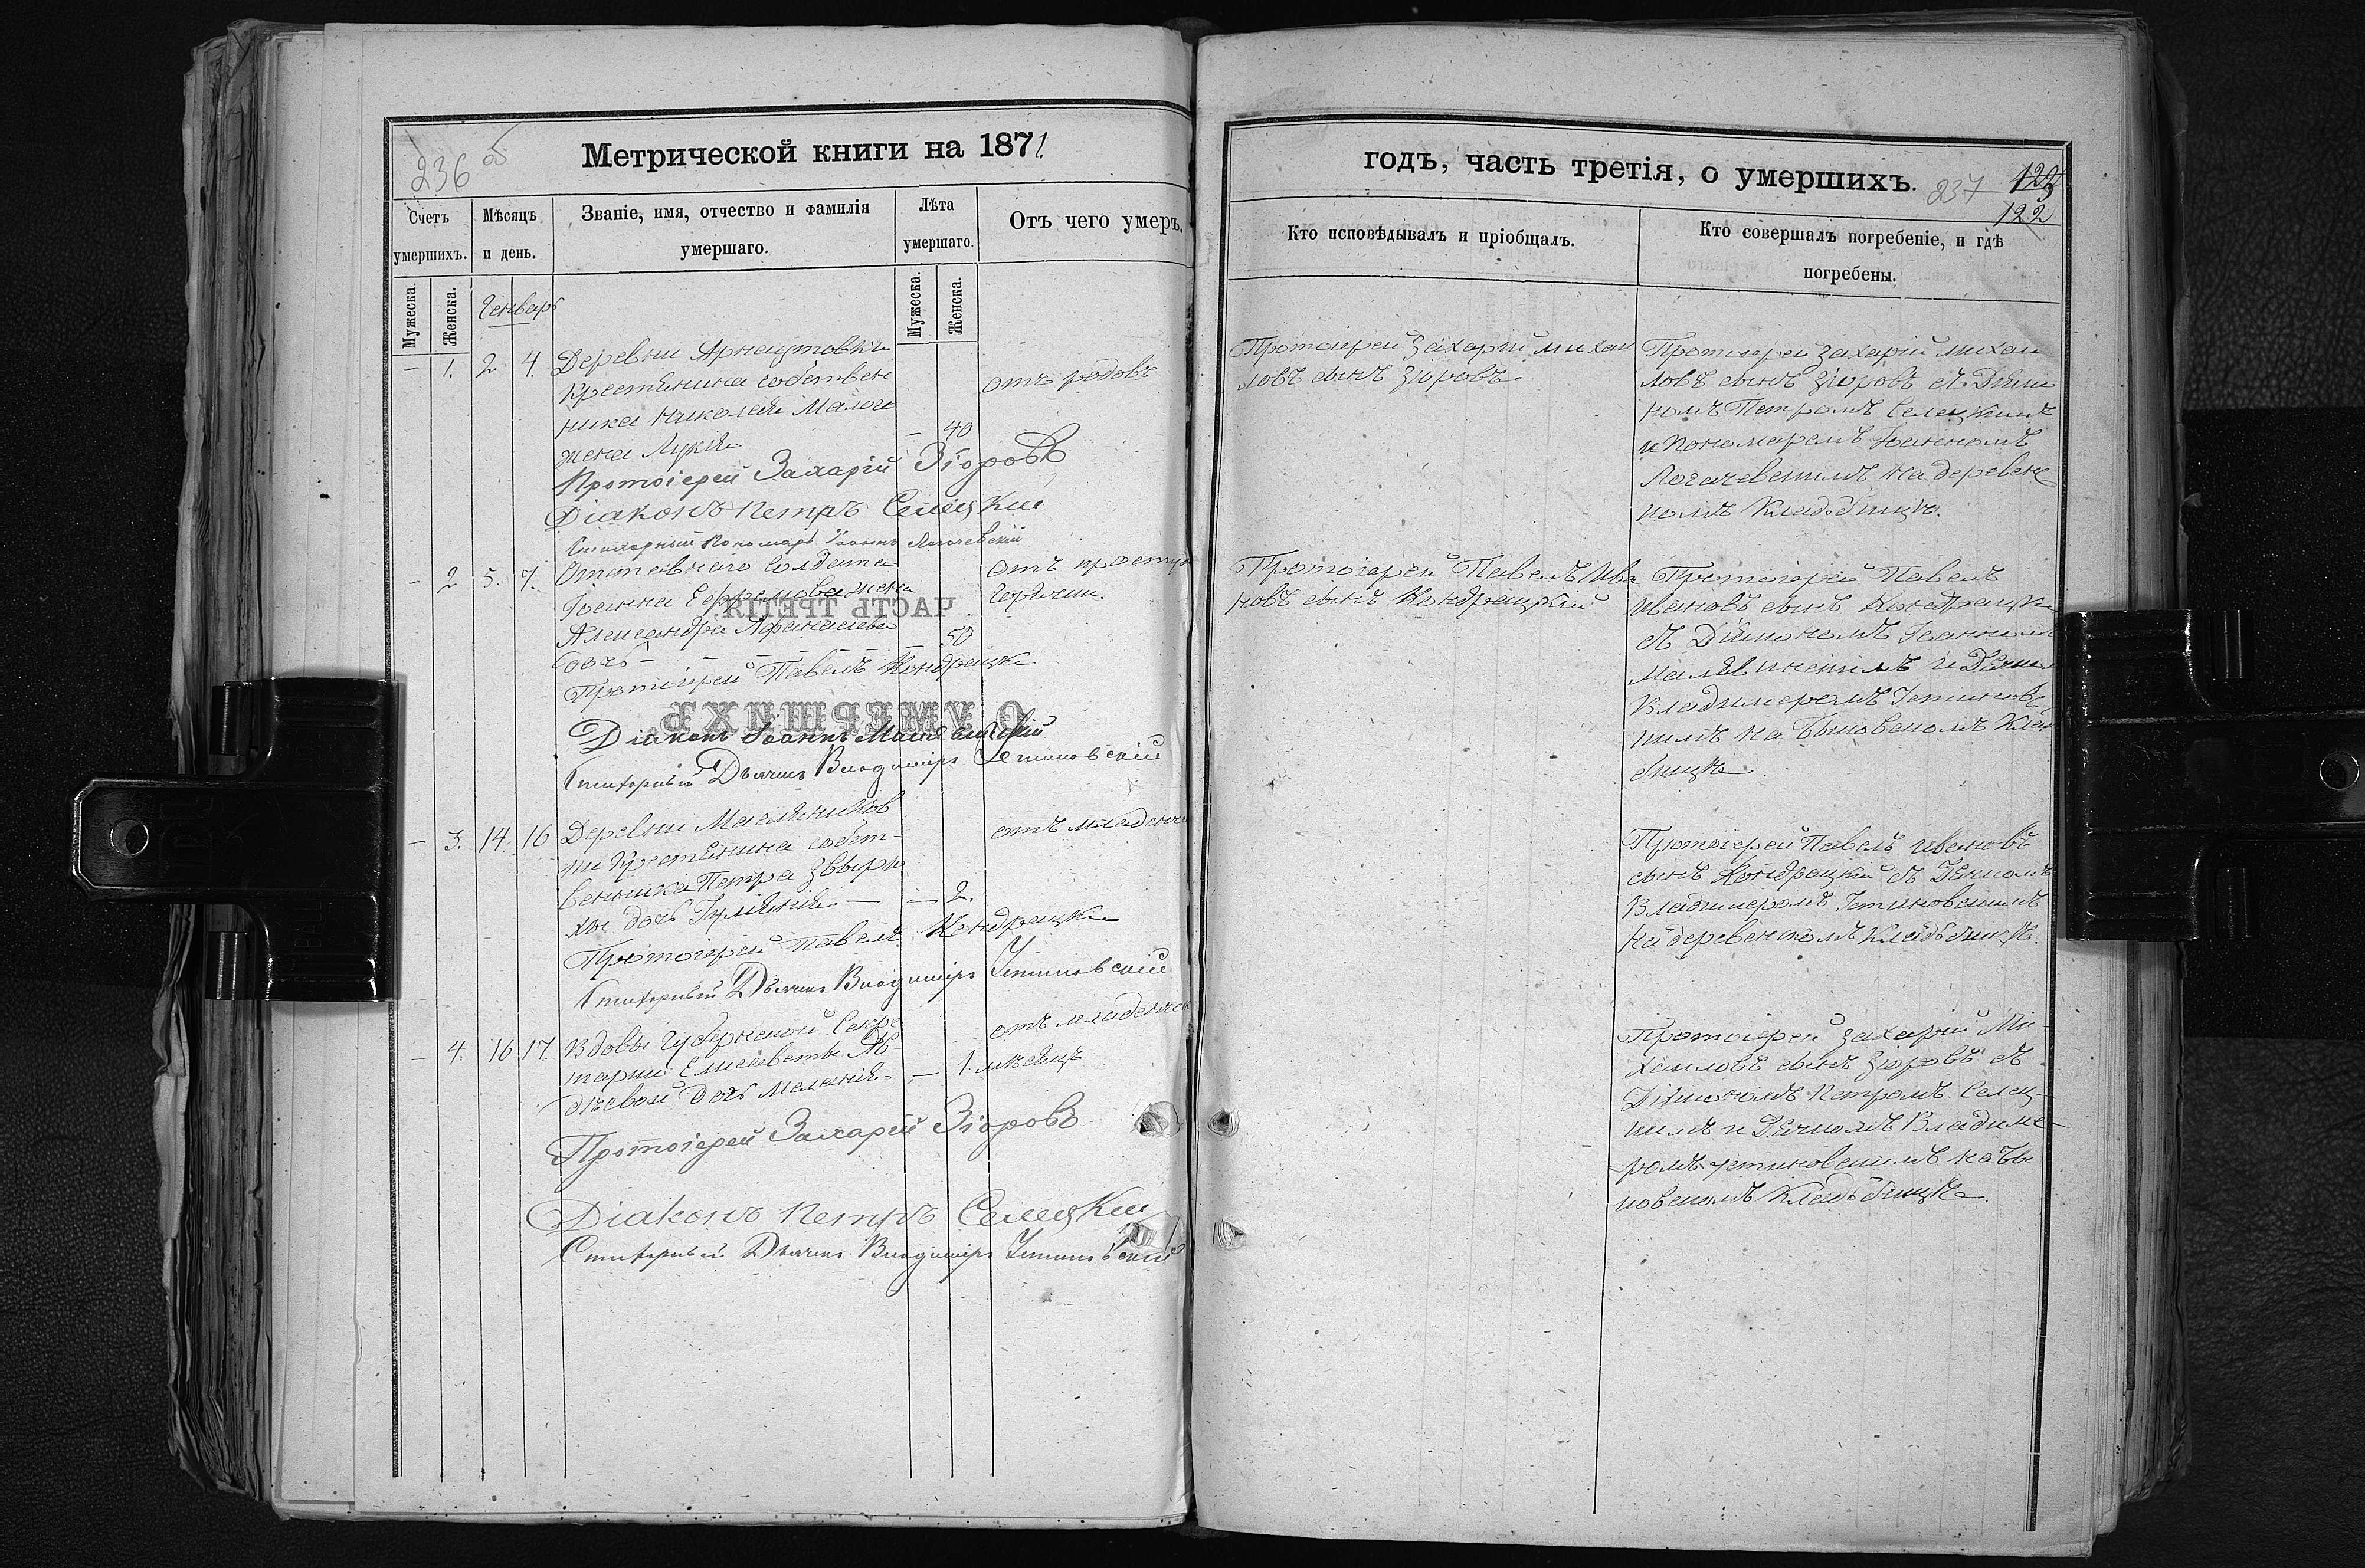 236 об
Метрической книги на 1871.
Счетъ умершихъ.
Мѣсяцъ и день.
Званіе, имя, отчество и фамилія умершаго.
Лѣта умершаго.
Отъ чего умеръ.
Мужеска.
Женска.
Генварь
Мужеска.
Женска.
– 1. 2 4. Деревни
Крестьянина собствен
ника Николая
жена Лукія – 40
отъ родовъ
Протоіерей Захарій Зіоровъ
Діаконъ Петръ Селецкій
Стихарный Пономарь Іоаннъ Логачевскій
– 2 5. 7. Отставнаго Солдата
Іоанна Ефремова жена
Александра Афанасіева
дочь – – – – – – 50
отъ простуд
Горячки.
ЧАСТЬ ТРЕТІЯ,
Протоіерей Павелъ Кондрацкій
О УМЕРШИХЪ.
Діаконъ Іоаннъ
Стихарный Дьячекъ Владиміръ Устиновскій
– 3. 14. 16 Деревни Масляников
ки Крестьянина собст-
венника Петра
дочь Іуліянія – – 2.
отъ младенч
Протоіерей Павелъ Кондрацкій
Стихарный Дьячекъ Владиміръ Устиновскій
– 4. 16 17. Вдовы Губернской Секре
тарши Елисаветы
дочь Меланія – 1. мѣсяцъ
отъ младенчес
Протоіерей Захарій Зіоровъ
Діаконъ Петръ Селецкій
Стихарный Дьячекъ Владиміръ Устиновскій
годъ, часть третія, о умершихъ.
237
122
Кто исповѣдывалъ и пріобщалъ.
Кто совершалъ погребеніе, и гдѣ погребены.
Протоіерей Захарій Михаи
ловъ сынъ Зіоровъ.
Протоіерей Захарій Михаи
ловъ сынъ Зіоровъ съ Діяко
номъ Петромъ Селецкимъ
и Пономаремъ Іоанномъ
Логачевскимъ на деревенс
комъ Кладбищѣ.
Протоіерей Павелъ Ива
новъ сынъ Кондрацкій
Протоіерей Павелъ
Ивановъ сынъ Кондрацкій
съ Діякономъ Іоанномъ
и Дячком
Владимеромъ Устиновс
кимъ на Клад
бищѣ.
Протоіерей Павелъ Ивановъ
сынъ Кондрацкій съ Дячкомъ
Владимеромъ Устиновскимъ
на деревенскомъ Кладбищѣ.
Протоіерей Захарій Ми-
хаиловъ сынъ Зіоровъ съ
Діякономъ Петромъ Селец-
кимъ и Дячкомъ Владиме-
ромъ Устиновскимъ на
Кладбищѣ.